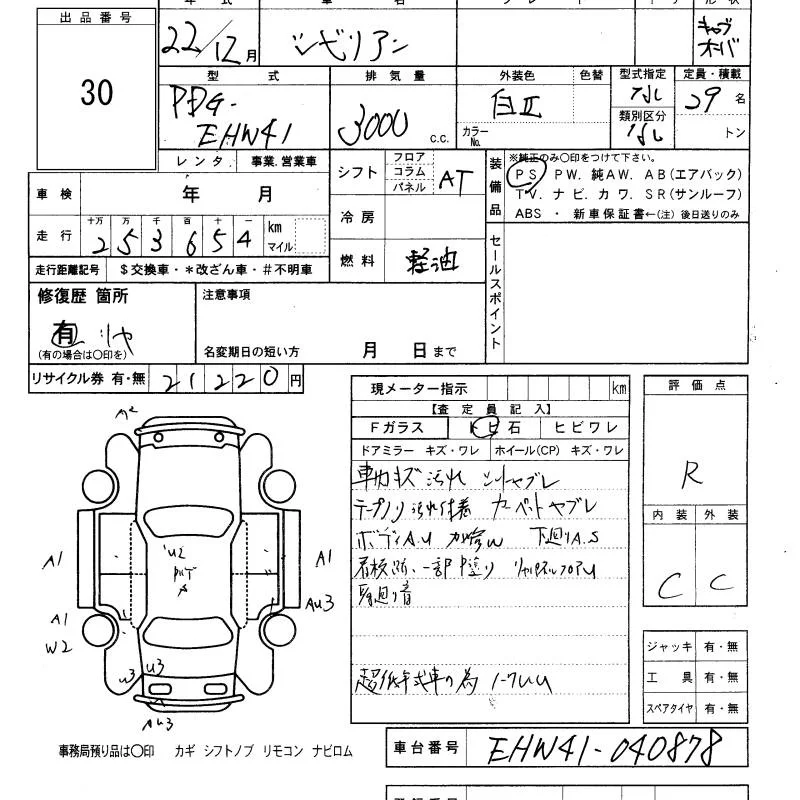 出品番号
30
22/12月
シビリアン
キャブオーバ
型 式
PDG-
EHW41
排気量
3000
C.C.
外装色
色替
白Ⅱ
カラーNo.
型式指定
なし
類別区分
なし
定員・積載
29名
トン
レンタ
事業.営業車
車検
年 月
走行
十万 万 千 百 十 一
253654
km
マイル
走行距離記号
$交換車・*改ざん車・#不明車
シフト
フロア
コラム
パネル
AT
冷房
燃料
軽油
装備品
※純正のみ○印をつけて下さい。
PS PW. 純AW. AB(エアバック)
TV. ナビ. カワ. SR(サンルーフ)
ABS ・ 新車保証書←(注) 後日送りのみ
セールスポイント
修復歴 箇所
有 リヤ
(有の場合は○印を)
注意事項
名変期日の短い方
月 日まで
リサイクル券 有・無
21220円
現メーター指示
km
【査定員記入】
Fガラス
トビ石
ヒビワレ
ドアミラー キズ・ワレ
ホイール(CP) キズ・ワレ
内キズ汚れ シートヤブレ
テープノリ汚れ付着 カーペットヤブレ
ボディA.U
下廻りA.S
看板跡.一部中塗り
超低年式車の為
評価点
R
内装
外装
C
C
ジャッキ 有・無
工具 有・無
スペアタイヤ 有・無
A2
A1
U2
A1
AU3
A1
W2
U3
U3
AU3
事務局預り品は○印 カギ シフトノブ リモコン ナビロム
車台番号
EHW41-040878